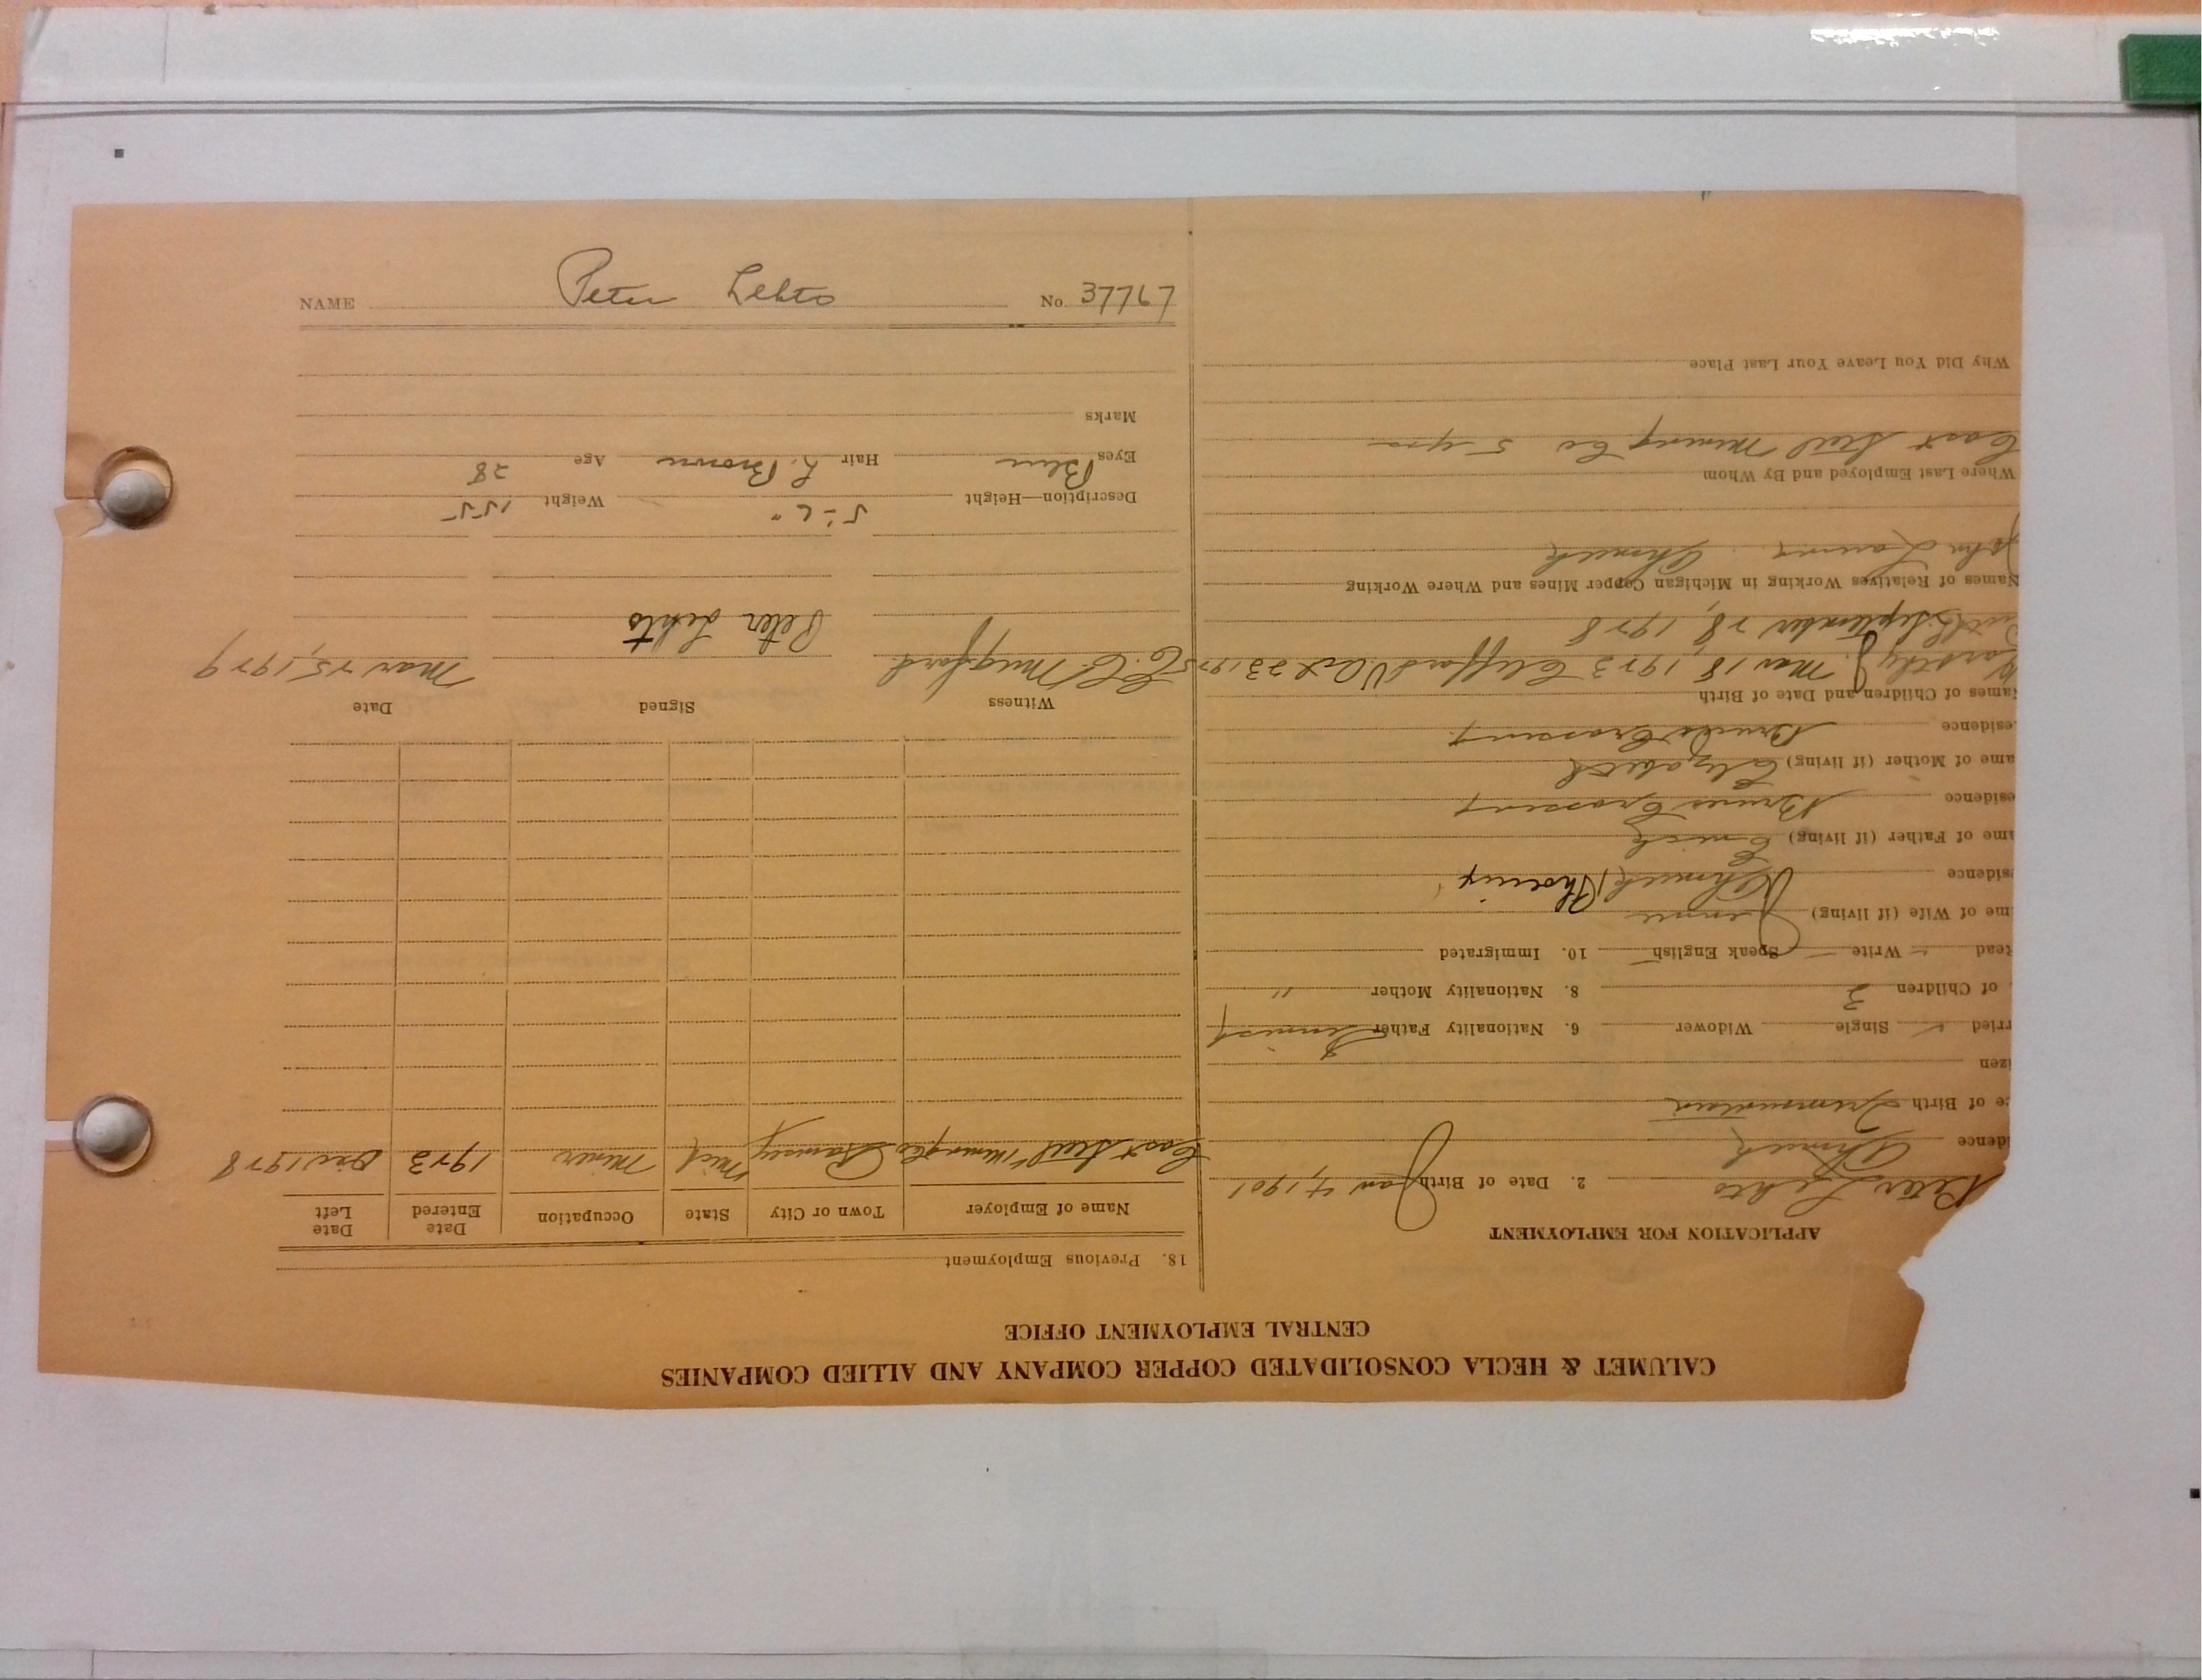 NAME Peter Lehto No. 37767
CALUMET & HECLA CONSOLIDATED COPPER COMPANY AND ALLIED COMPANIES
CENTRAL EMPLOYMENT OFFICE
APPLICATION FOR EMPLOYMENT
Peter Lehto 2. Date of Birth Jan 4, 1901
idence Ahmeek
ce of Birth
izen
rried ✓ Single Widower 6. Nationality Father Finnish
of Children 3 8. Nationality Mother "
Read Write Speak English 10. Immigrated
me of Wife (if living) Jennie
sidence Ahmeek Phoenix
ame of Father (if living)
esidence Bruces Crossing
ame of Mother (if living) Elizabeth
esidence Bruces Crossing
Names of Children and Date of Birth
Dorothy J. Mar 18, 1923 Clifford V. Oct 23 1925
Ruth September 28, 1928
Names of Relatives Working in Michigan Copper Mines and Where Working
John Ahmeek
Where Last Employed and By Whom
Cast Steel Mining Co 5 yrs
Why Did You Leave Your Last Place
18. Previous Employment
Name of Employer Town or City State Occupation Date Entered Date Left
Cast Steel Mining Co Ramsay Mich Miner 1923 Dec 1928
Witness Signed Date
C. C. Mugford Peter Lehto Mar 25, 1929
Description—Height 5'-6" Weight 155
Eyes Blue Hair L. Brown Age 28
Marks